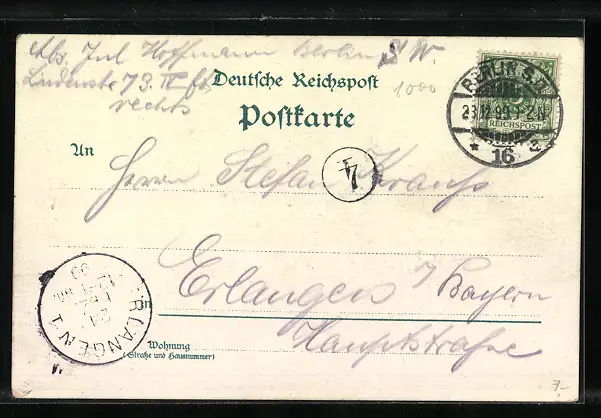 Abs. Jul Hoffmann Berlin S.W.
Lindenstr 73. IV
rechts
Deutsche Reichspost
Postkarte
1000
BERLIN S.W.
23.12.99. 2-3N
* 16 a
REICHSPOST
An
Herrn Stefan Krauß
4
Erlangen / Bayern
in
Hauptstraße
Wohnung
(Straße und Hausnummer)
ERLANGEN 1
24
DEZ
99
7.-